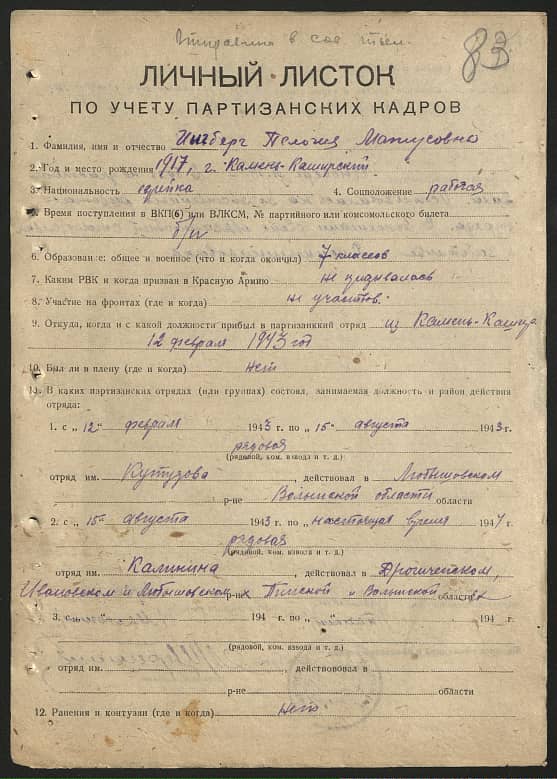 Отправлена в сов тыл.
83
ЛИЧНЫЙ ЛИСТОК
ПО УЧЕТУ ПАРТИЗАНСКИХ КАДРОВ
1. Фамилия, имя и отчество Матусовна
2. Год и место рождения 1917, г. Камень-Каширский
3. Национальность еврейка 4. Соцположение рабочая
5. Время поступления в ВКП(б) или ВЛКСМ, № партийного или комсомольского билета
б/п
6. Образование: общее и военное (что и когда окончил) 7 классов
7. Каким РВК и когда призван в Красную Армию не призывалась
8. Участие на фронтах (где и когда) не участвов.
9. Откуда, когда и с какой должности прибыл в партизанский отряд из Камень-Кашира
12 февраля 1943 год
10. Был ли в плену (где и когда) нет
11. В каких партизанских отрядах (или группах) состоял, занимаемая должность и район действия
отряда:
1. с „ 12 " февраля 1943 г. по „ 15 " августа 1943 г.
рядовая
(рядовой, ком. взвода и т. д.)
отряд им. Кутузова, действовал в Любешовском
р-не Волынской области области
2. с „ 15 " августа 1943 г. по „ настоящее время 1944 г.
рядовая
(рядовой, ком. взвода и т. д.)
отряд им. Калинина, действовал в Дрогиченском,
Ивановском и Любешовском р-не Пинской и Волынской области
3. 194 г. по „ 194 г.
(рядовой, ком. взвода и т. д.)
отряд им. , действовал в
р-не области
12. Ранения и контузии (где и когда) нет